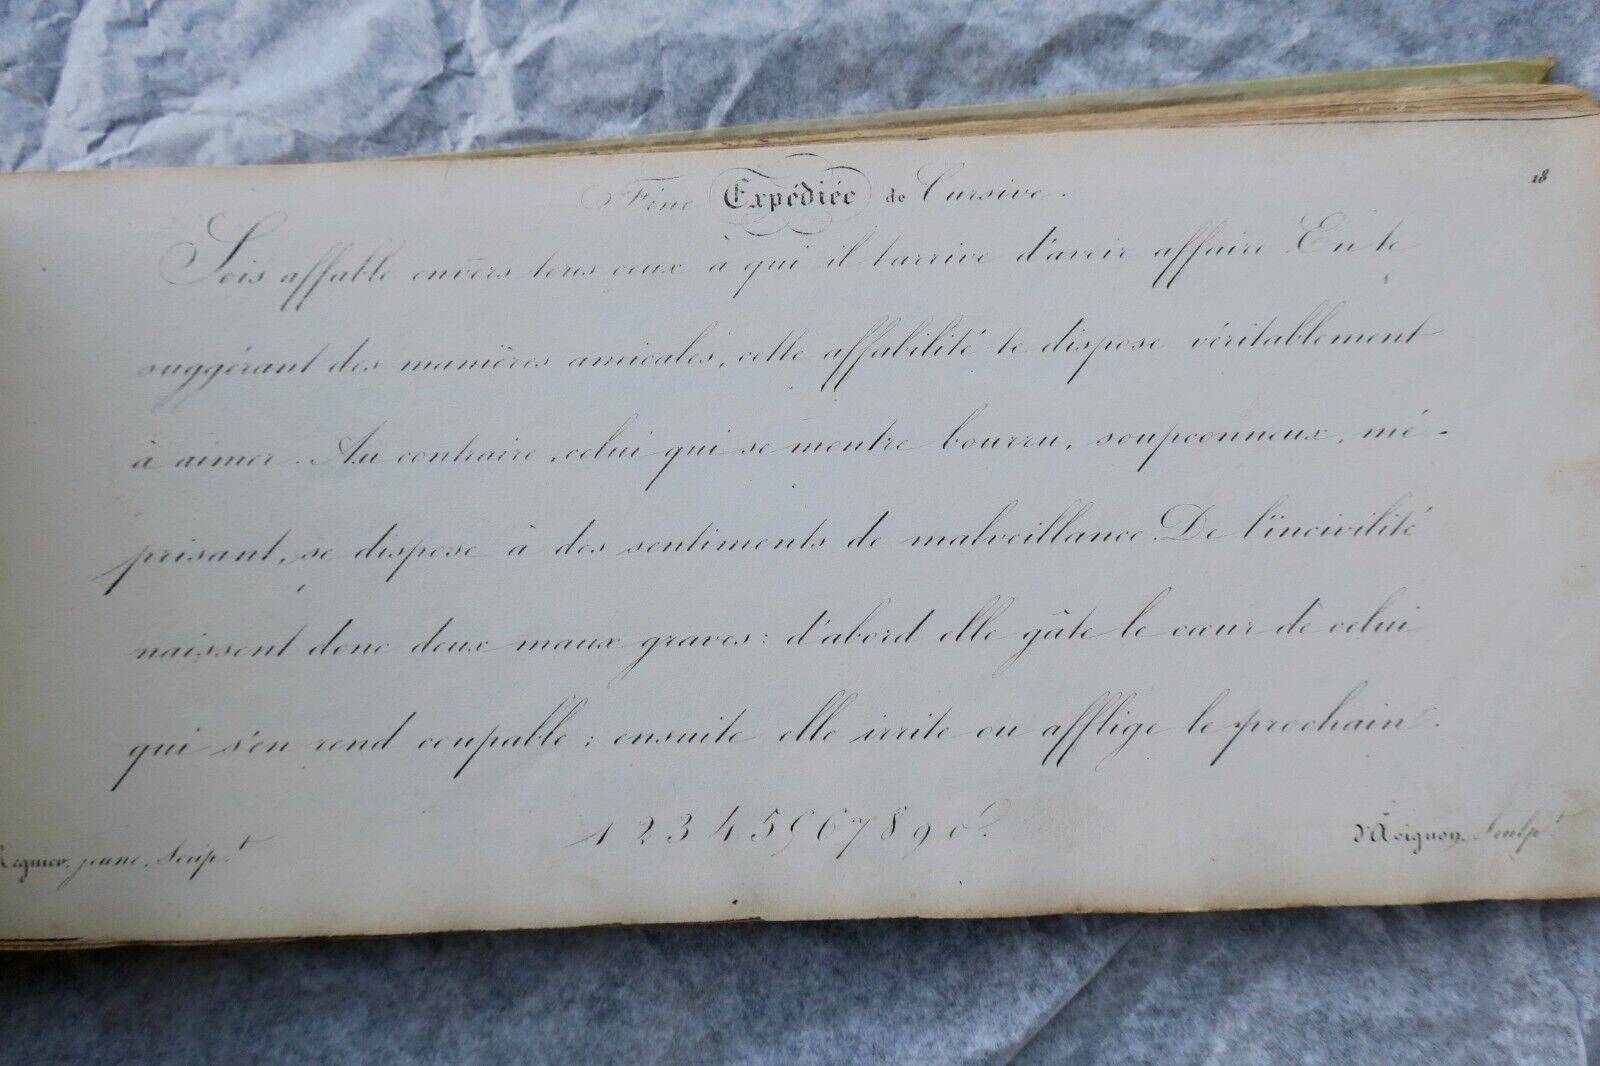 Fine Expédiée de Cursive.
18
Sois affable envers tous ceux à qui il t'arrive d'avoir affaire. En te
suggérant des manières amicales, cette affabilité te dispose véritablement
à aimer. Au contraire, celui qui se montre bourru, soupçonneux, mé-
prisant, se dispose à des sentiments de malveillance. De l'incivilité
naissent donc deux maux graves: d'abord elle gâte le cœur de celui
qui s'en rend coupable; ensuite elle irrite ou afflige le prochain.
1 2 3 4 5 5 6 7 8 9 0.
Regnier, jeune, Scrip.t
d'Avignon, Sculp.t